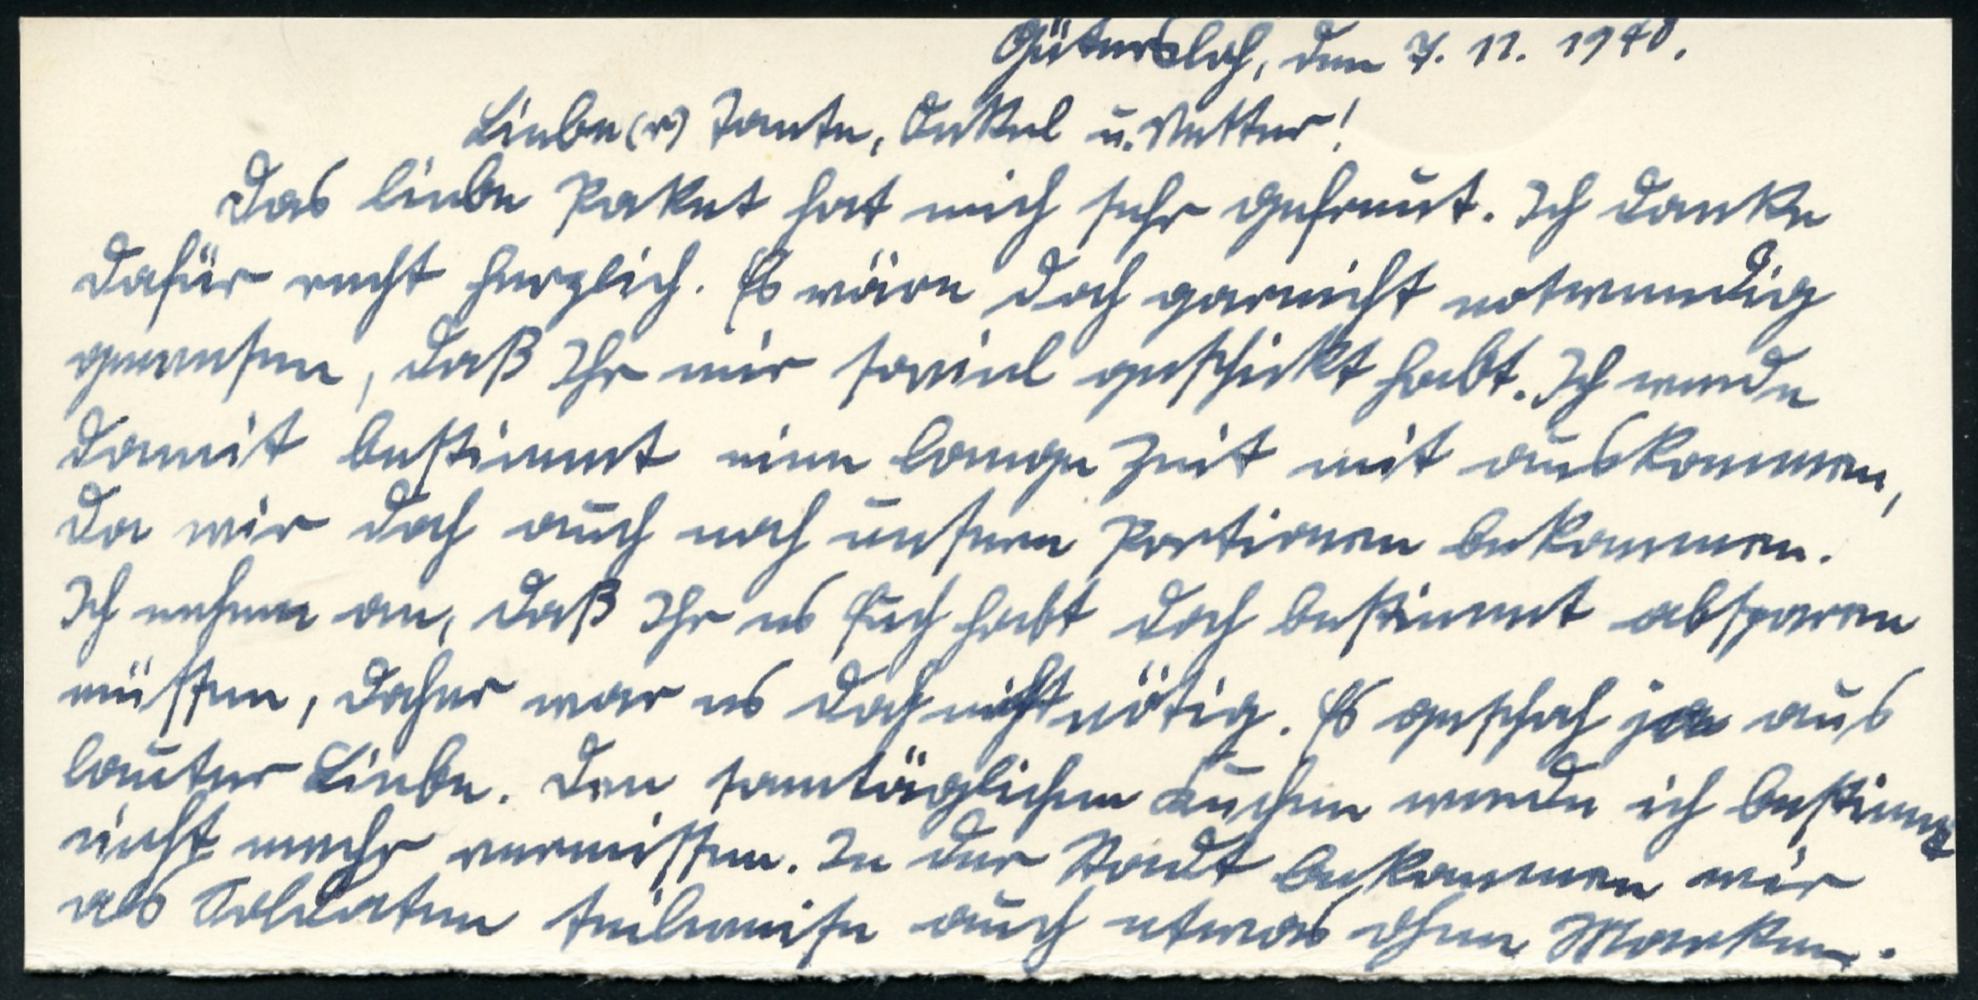 Gütersloh, den 7. 11. 1940.
Liebe(r) Tante, Onkel u. Vetter!
Das liebe Paket hat mich sehr gefreut. Ich danke
dafür recht herzlich. Es wäre doch garnicht notwendig
gewesen, daß Ihr mir soviel geschickt habt. Ich werde
damit bestimmt eine lange Zeit mit auskommen,
da wir doch auch noch unsere Portionen bekommen.
Ich nehme an, daß Ihr es Euch habt doch bestimmt absparen
müssen, daher war es doch nicht nötig. Es geschah ja aus
lauter Liebe. Den samtäglichen Kuchen werde ich bestimmt
nicht mehr vermissen. In der Stadt bekommen wir
als Soldaten teilweise auch etwas ohne Marken.